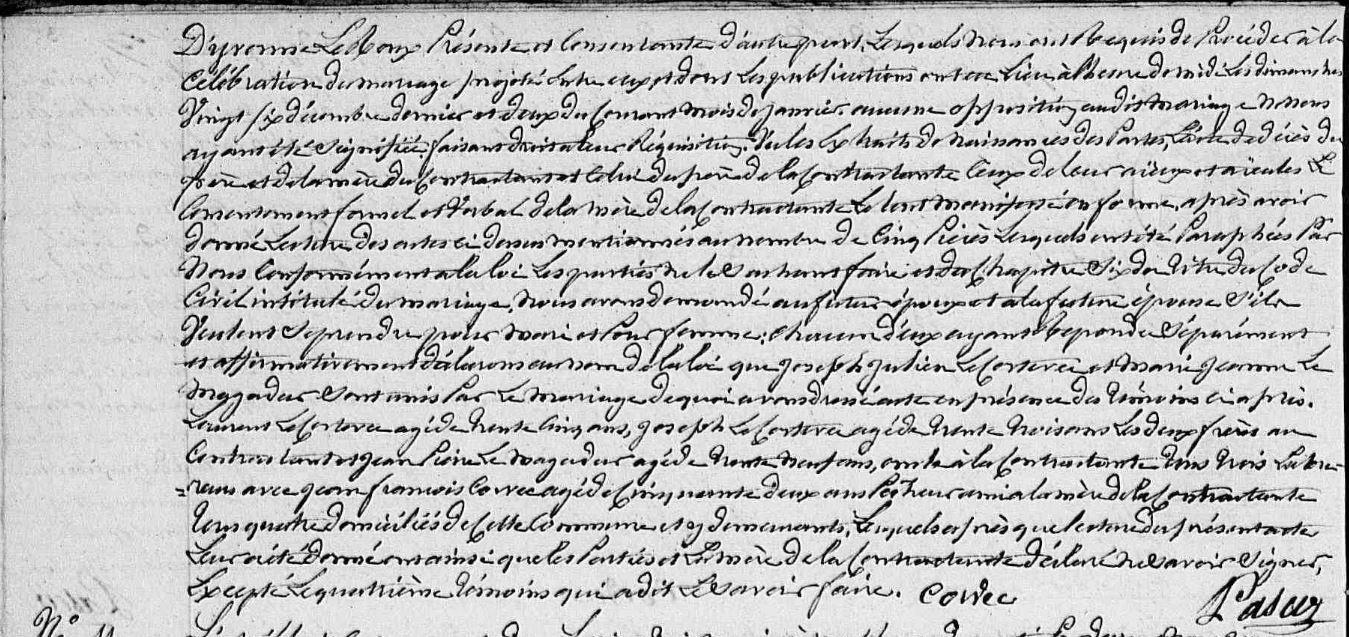 D'yvonne Le Roux Présente et Consentante d'autre part, Lesquels Nous ont Requis de Procéder à la
Célébration du mariage projeté entre eux, et dont Les publications ont eu Lieu à l'heure de midi Les dimanches
Vingt six décembre dernier et deux du Courant mois de Janvier. aucune opposition audit mariage Ne nous
ayant été Signifiée, faisant droit à leur Réquisition. Vu les Extraits de Naissances des Parties, L'acte de décès du
père et de la mère du Contractant et Celui du père de la Contractante Ceux de leurs aïeux et aïeules Le
Consentement formel et Verbal de la mère de la Contractante Le tout en forme, après avoir
donné Lecture des actes ci dessus mentionnés au nombre de Cinq Pièces Lesquels ont été Paraphées Par
Nous Conformément à la loi Les parties ne le Sachant faire et du Chapitre Six du Titre du Code
Civil intitulé du mariage, Nous avons demandé au futur époux et à la future épouse S'ils
Veulent Se prendre pour mari et Pour femme; chacun d'eux ayant Repondu Séparément
et affirmativement déclarons au nom de la loi que Joseph Julien Le Corvec et Marie Jeanne Le
Magadur Sont unis Par Le Mariage de quoi avons dressé acte en présence des Témoins ci après.
Laurent Le Corvec agé de trente Cinq ans, Joseph Le Corvec agé de trente trois ans Les deux frères au
Contractant et Jean Pierre Le Magadur agé de trente neuf ans, oncle à la Contractante tous trois Labou-
=reurs avec Jean François Corvec agé de Cinquante deux ans Pêcheur ami à la mère de la Contractante
Tous quatre domiciliés de Cette Commune et y demeurants, Lesquels après que lecture du présent acte
Leur a été donné et ainsi que les Parties et La mère de la Contractante déclaré ne Savoir Signer,
Excepté Le quatrième Témoins qui a dit Le Savoir faire. Corvec
N°